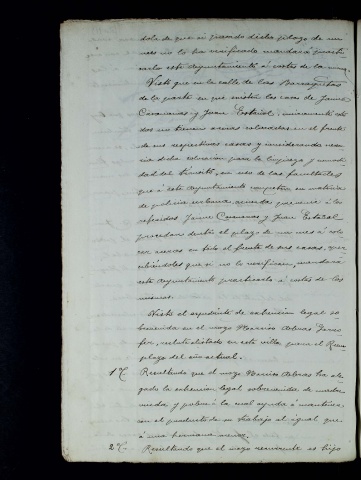 dole de que si pasado dicho plazo de un
mes no lo ha verificado mandará practi
carlo este Ayuntamiento á costas de la misma.
Visto que en la calle de las Barraquetas
de la parte en que existen las casas de Jaime
Casanovas y Juan, únicamente estos
dos no tienen aceras colocadas en el frente
de sus respectivas casas y considerando nece
saria dicha colocación para la limpieza y comodi
dad del tránsito, en uso de las facultades
que á este Ayuntamiento competen en materia
de policia urbana, acuerda prevenir á los
referidos Jaime Casanovas y Juan
procedan dentro el plazo de un mes á colo
car aceras en todo el frente de sus casas, aper
cibiéndoles que si no lo verifican, mandará
este Ayuntamiento practicarlo á costas de los
mismos.
Visto el expediente de exhención legal so
brevenida en el mozo Narciso
alistado en esta villa para el Reem
plazo del año actual.
1º Resultando que el mozo Narciso ha ale
gado la exhención legal sobrevenida de madre
viuda y pobre á la cual ayuda á mantener
con el producto de su trabajo al igual que
á una hermana menor.
2º Resultando que el mozo recurrente es hijo